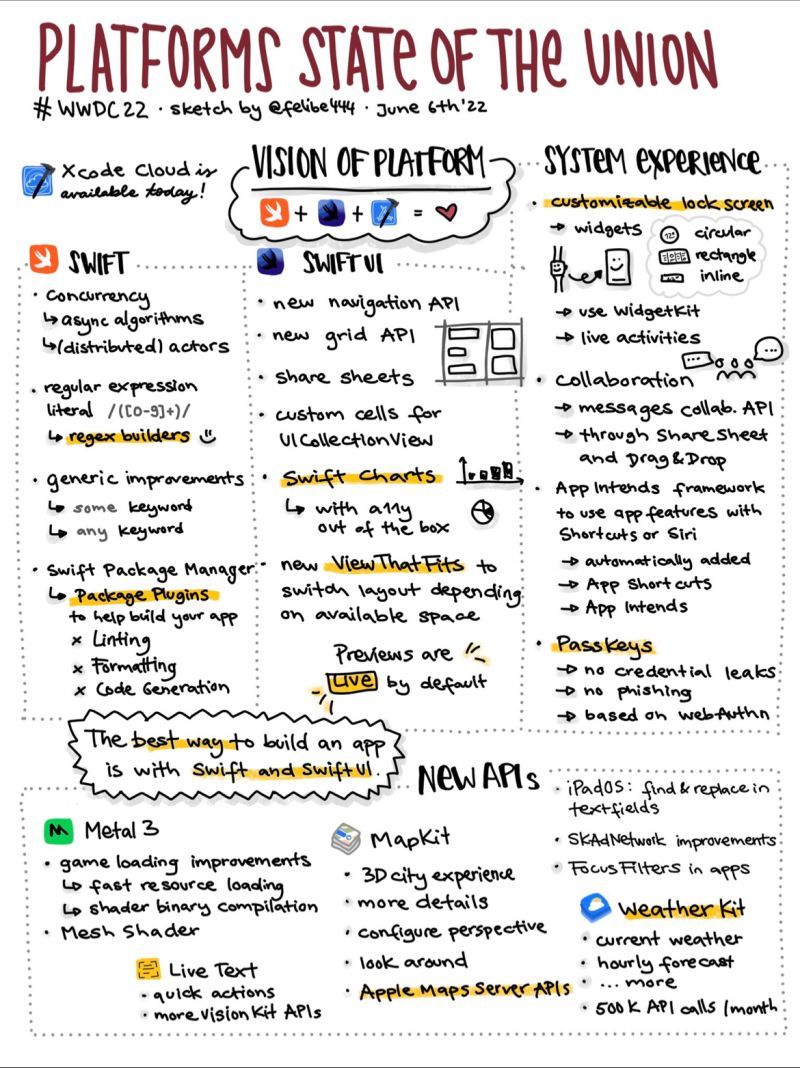 PLATFORMS STATE OF THE UNION
#WWDC22 · sketch by @felibe444 · June 6th '22
Xcode Cloud is
available today!
VISION OF PLATFORM
+ + =
SWIFT
· concurrency
↳ async algorithms
↳ (distributed) actors
· regular expression
literal /([0-9]+)/
↳ regex builders
· generic improvements
↳ some keyword
↳ any keyword
· Swift Package Manager
↳ Package Plugins
to help build your app
x Linting
x Formatting
x Code Generation
SWIFTUI
· new navigation API
· new grid API
· share sheets
· custom cells for
UICollectionView
· Swift Charts
↳ with a11y
out of the box
· new ViewThatFits to
switch layout depending
on available space
Previews are
LIVE by default
SYSTEM EXPERIENCE
· customizable lock screen
→ widgets
circular
rectangle
inline
→ use WidgetKit
→ live activities
· collaboration
→ messages collab. API
→ through Share Sheet
and Drag & Drop
· App Intends framework
to use app features with
Shortcuts or Siri
→ automatically added
→ App Shortcuts
→ App Intends
· PassKeys
→ no credential leaks
→ no phishing
→ based on WebAuthn
The best way to build an app
is with Swift and SwiftUI.
NEW APIs
Metal 3
· game loading improvements
↳ fast resource loading
↳ shader binary compilation
· Mesh Shader
Live Text
· quick actions
· more Vision Kit APIs
MapKit
· 3D city experience
· more details
· configure perspective
· look around
· Apple Maps Server APIs
· iPadOS: find & replace in
textfields
· SKAdNetwork improvements
· Focus Filters in apps
Weather Kit
· current weather
· hourly forecast
· ... more
· 500K API calls /month